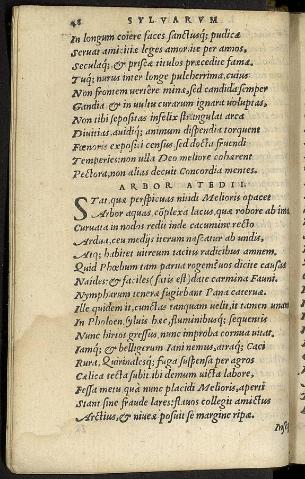 48 SYLVARVM
In longum coiere faces sanctusq; pudicæ
Seruat amicitiæ leges amor. ite per annos,
Seculaq; & priscæ titulos præcedite famæ.
Tuq; nurus inter longe pulcherrima, cuius
Non frontem vertêre minæ, sed candida semper
Gaudia & in vultu curarum ignara voluptas,
Non tibi sepositas infelix strangulat arca
Diuitias, auidiq; animum dispendia torquent
Fœnoris expositi census sed docta fruendi
Temperies: non ulla Deo meliore cohærent
Pectora, non alias decuit Concordia mentes.
ARBOR ATEDII.
STat, quæ perspicuas niudi Melioris opacet
Arbor aquas, cōplexa lacus, quæ robore ab imo
Curuata in nodos redit inde cacumine recto
Ardua, ceu medijs iterum nascatur ab undis,
Atq; habitet uitreum tacitis radicibus amnem.
Quid Phœbum tam parua rogem? uos dicite causas
Naides: & faciles (satis est) date carmina Fauni.
Nympharum teneræ fugiebant Pana cateruæ.
Ille quidem it, cunctas tanquam uelit, it tamen unam
In Pholoen, syluis hæc, fluminibusq; sequentis
Nunc hirtos gressus, nunc improba cornua uitat,
Iamq; & belligerum Iani nemus, atraq; Caci
Rura, Quirinalesq; fuga suspensa per agros
Cælica tecta subit. ibi demum uicta labore,
Fessa metu quà nunc placidi Melioris, aperti
Stant sine fraude lares: flauos collegit amictus
Arctius, & niueæ posuit se margine ripæ.